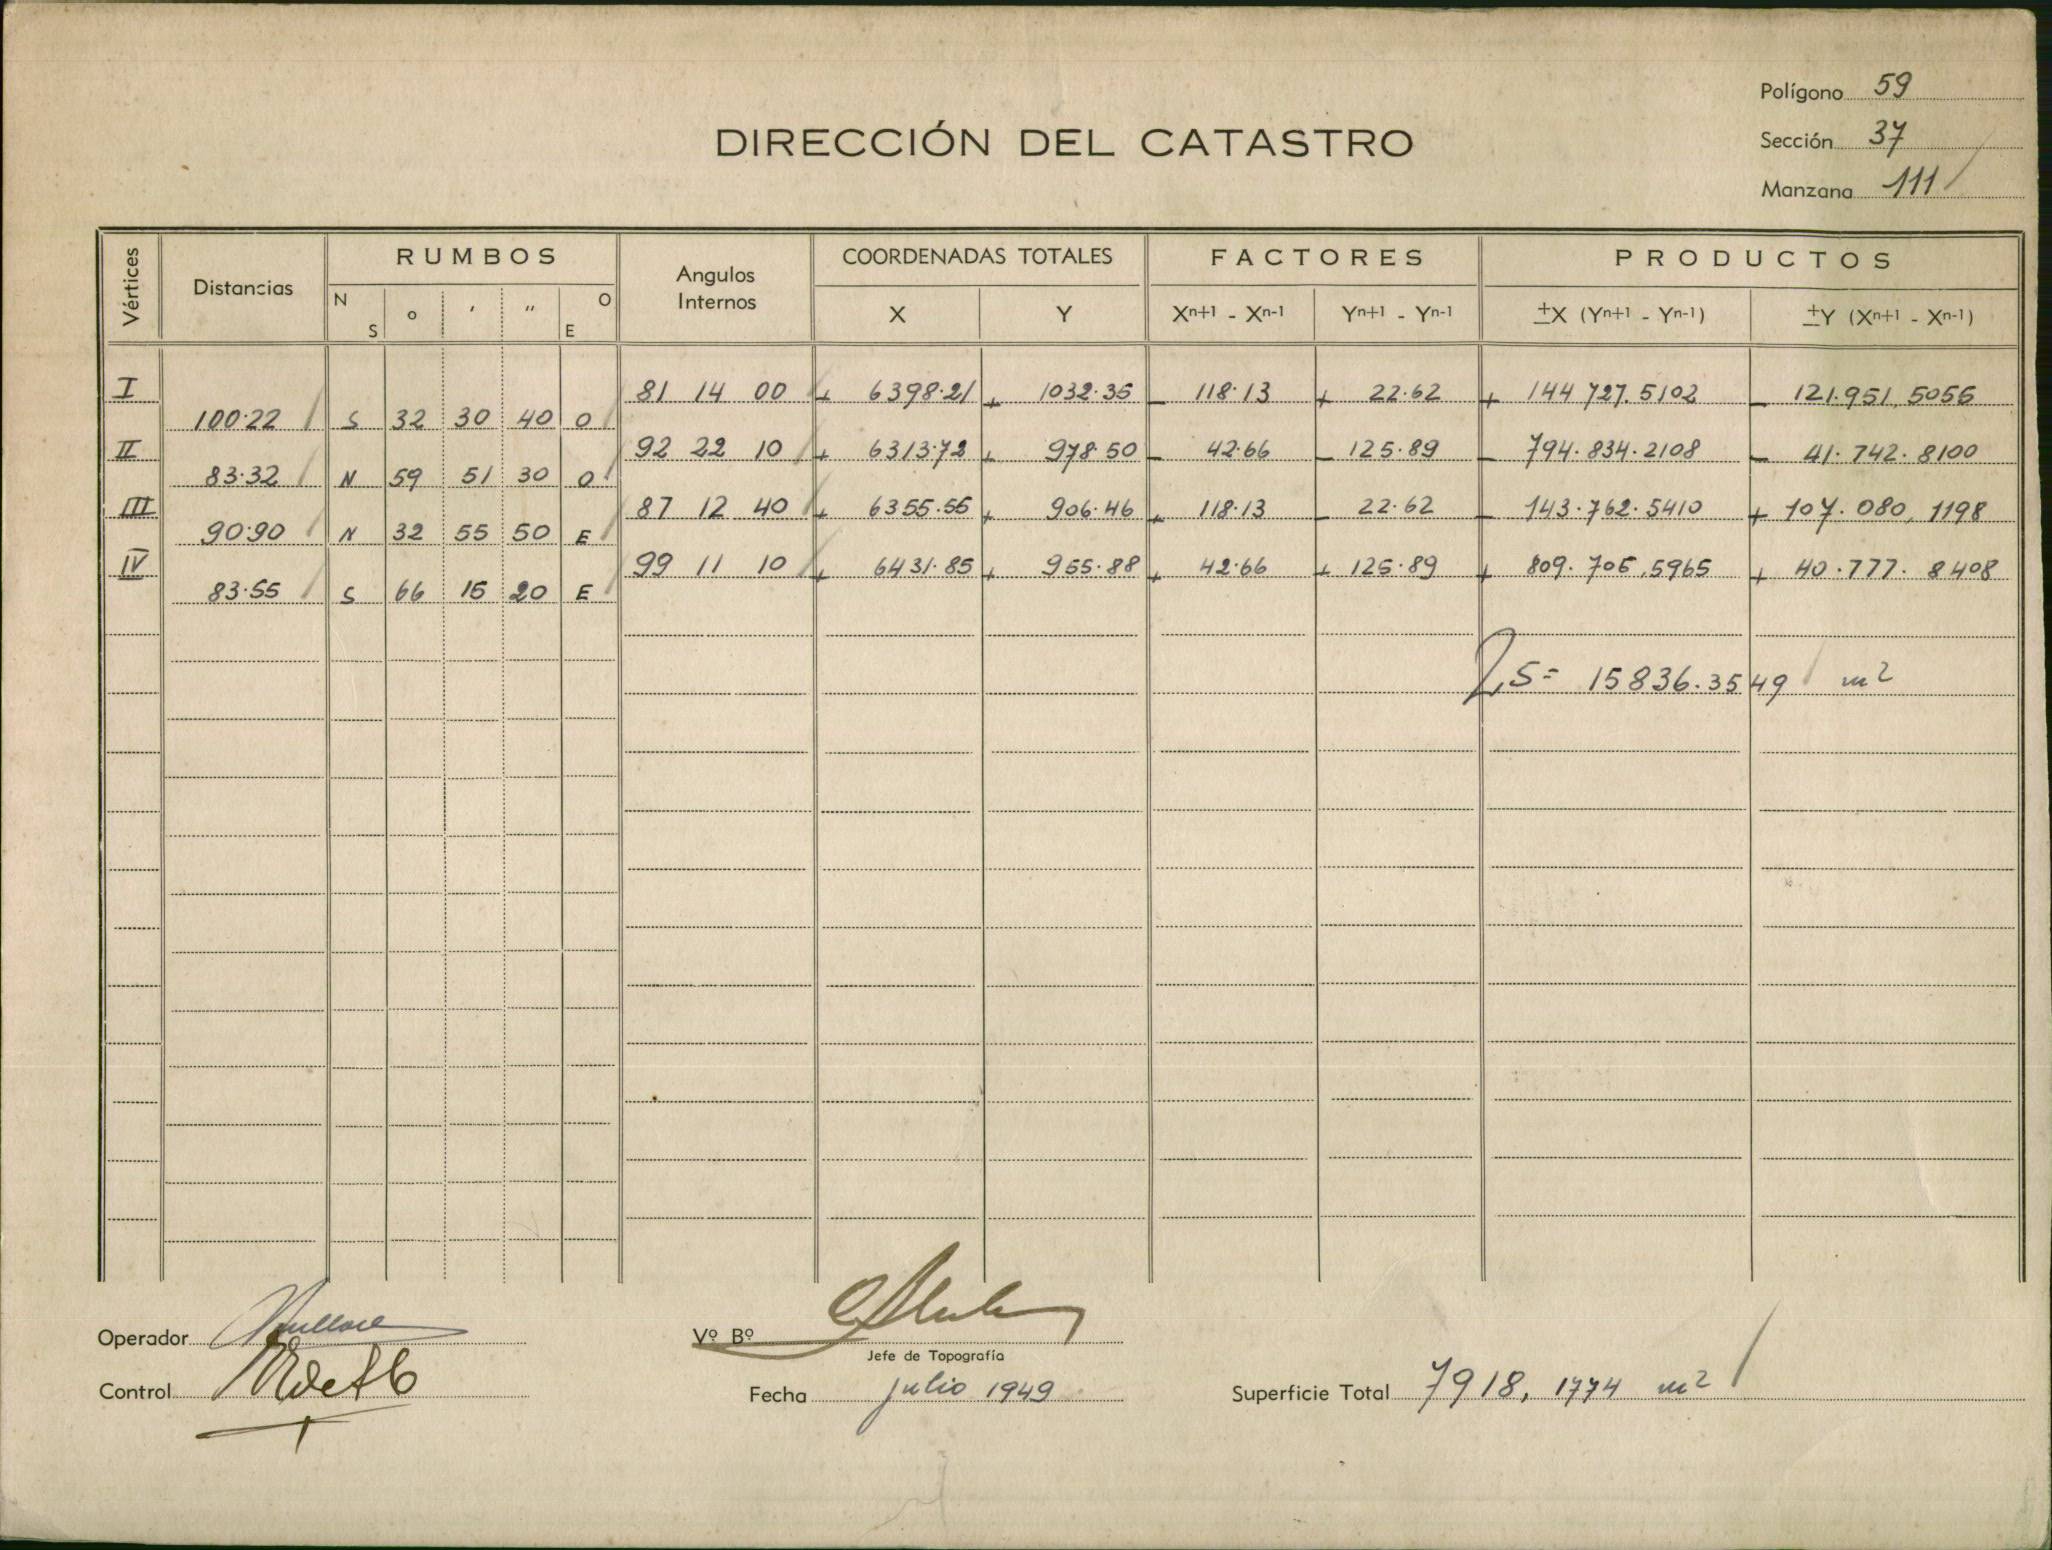 Polígono 59
DIRECCIÓN DEL CATASTRO
Sección 37
Manzana 111
Vértices Distancias RUMBOS Angulos Internos COORDENADAS TOTALES FACTORES PRODUCTOS
N S ° ' " O E X Y Xn+1 - Xn-1 Yn+1 - Yn-1 ±X (Yn+1 - Yn-1) ±Y (Xn+1 - Xn-1)
I 81 14 00 + 6398.21 + 1032.35 - 118.13 + 22.62 + 144 727.5102 - 121.951,5055
100.22 S 32 30 40 O
II 92 22 10 + 6313.72 + 978.50 - 42.66 - 125.89 - 794.834.2108 - 41.742.8100
83.32 N 59 51 30 O
III 87 12 40 + 6355.55 + 906.46 + 118.13 - 22.62 - 143.762.5410 + 107.080,1198
90.90 N 32 55 50 E
IV 99 11 10 + 6431.85 + 955.88 + 42.66 + 125.89 + 809.705,5965 + 40.777.8408
83.55 S 66 15 20 E
2S= 15836.3549 m²
Operador
Vº Bº
Jefe de Topografía
Control
Fecha julio 1949
Superficie Total 7918,1774 m²